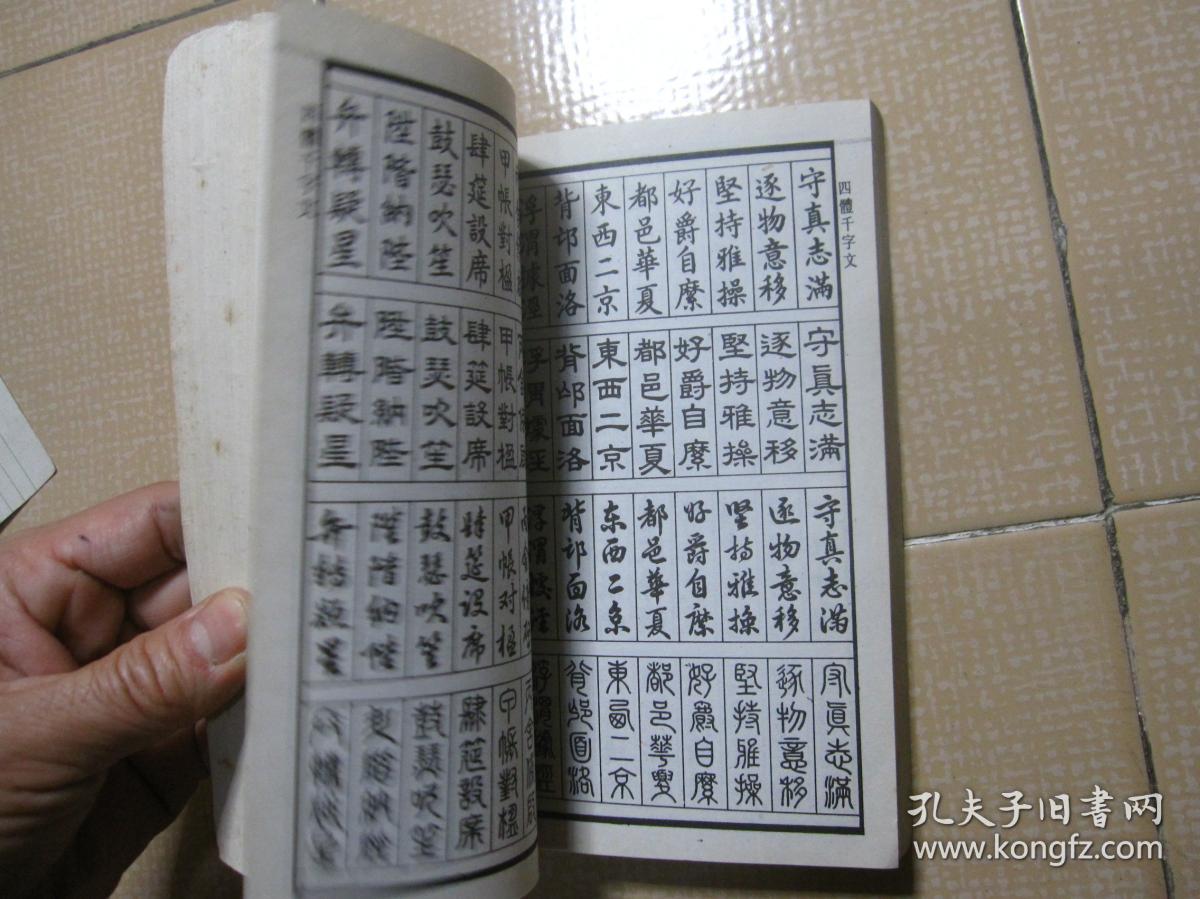 四體千字文
守真志滿
逐物意移
堅持雅操
好爵自縻
都邑華夏
東西二京
背邙面洛
浮渭據涇
守真志滿
逐物意移
堅持雅操
好爵自縻
都邑華夏
東西二京
背邙面洛
浮渭據涇
守真志滿
逐物意移
堅持雅操
好爵自縻
都邑華夏
东西二京
背邙面洛
浮渭據涇
守真志滿
逐物意移
堅持雅操
好爵自縻
都邑華夏
東西二京
背邙面洛
浮渭據涇
甲帳對楹
肆筵設席
鼓瑟吹笙
陞階納陛
弁轉疑星
甲帳對楹
肆筵設席
鼓瑟吹笙
陞階納陛
弁轉疑星
甲帳对楹
肆筵设席
鼓瑟吹笙
陞階納陛
弁轉疑星
甲帳對楹
肆筵設席
鼓瑟吹笙
孔夫子旧书网
www.kongfz.com